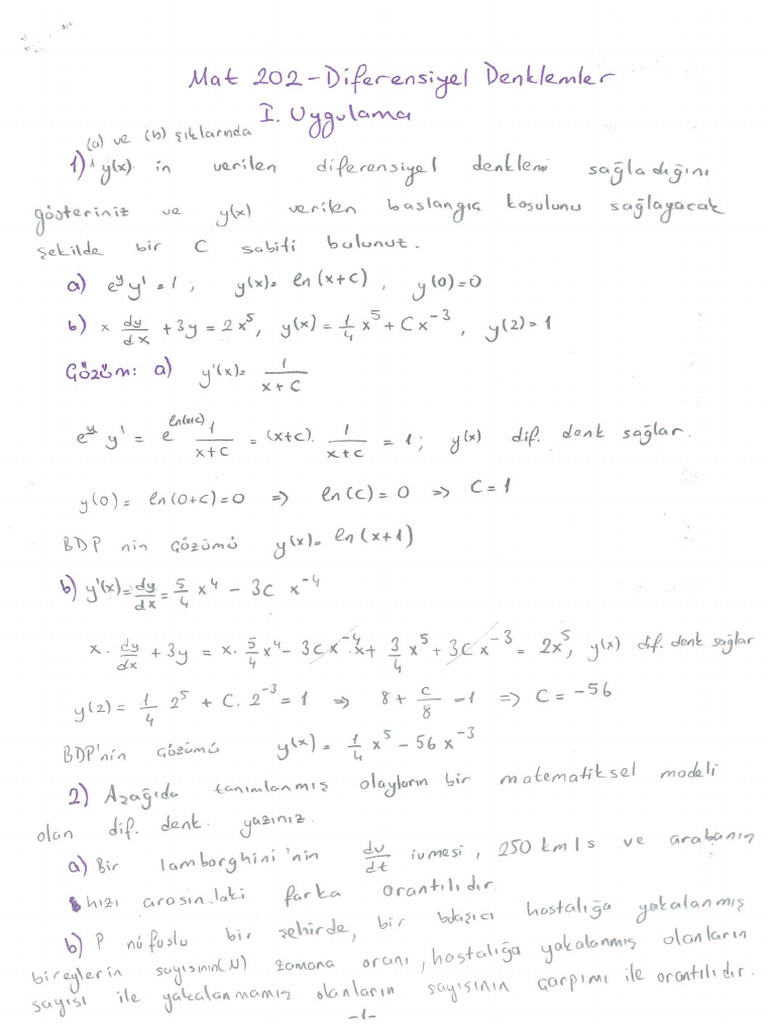 Mat 202 - Diferensiyel Denklemler
I. Uygulama
(a) ve (b) şıklarında
1) y(x) in verilen diferensiyel denklemi sağladığını
gösteriniz ve y(x) verilen baslangıç koşulunu sağlayacak
şekilde bir C sabiti bulunuz.
a) e^y y' = 1 ; y(x) = ln(x+c) , y(0)=0
b) x dy/dx + 3y = 2x^5, y(x) = 1/4 x^5 + Cx^-3 , y(2)=1
Gözüm: a) y'(x) = 1/(x+c)
e^y y' = e^ln(x+c) 1/(x+c) = (x+c). 1/(x+c) = 1 ; y(x) dif. denk sağlar.
y(0) = ln(0+c) = 0 => ln(c) = 0 => C = 1
BDP nin Gözümü y(x) = ln(x+1)
b) y'(x) = dy/dx = 5/4 x^4 - 3c x^-4
x. dy/dx + 3y = x. 5/4 x^4 - 3c x^-4 x + 3/4 x^5 + 3c x^-3 = 2x^5, y(x) dif. denk sağlar
y(2) = 1/4 2^5 + C. 2^-3 = 1 => 8 + c/8 -1 => C = -56
BDP'nin Gözümü y(x) = 1/4 x^5 - 56 x^-3
2) Aşağıda tanımlanmış olayların bir matematiksel modeli
olan dif. denk. yazınız.
a) Bir lamborghini'nin dv/dt ivmesi, 250 km/s ve arabanın
hızı arasındaki farka orantılıdır.
b) P nüfuslu bir şehirde, bir bulaşıcı hastalığa yakalanmış
bireylerin sayısının(N) zamana oranı, hastalığa yakalanmış olanların
sayısı ile yakalanmamış olanların sayısının çarpımı ile orantılıdır.
-1-